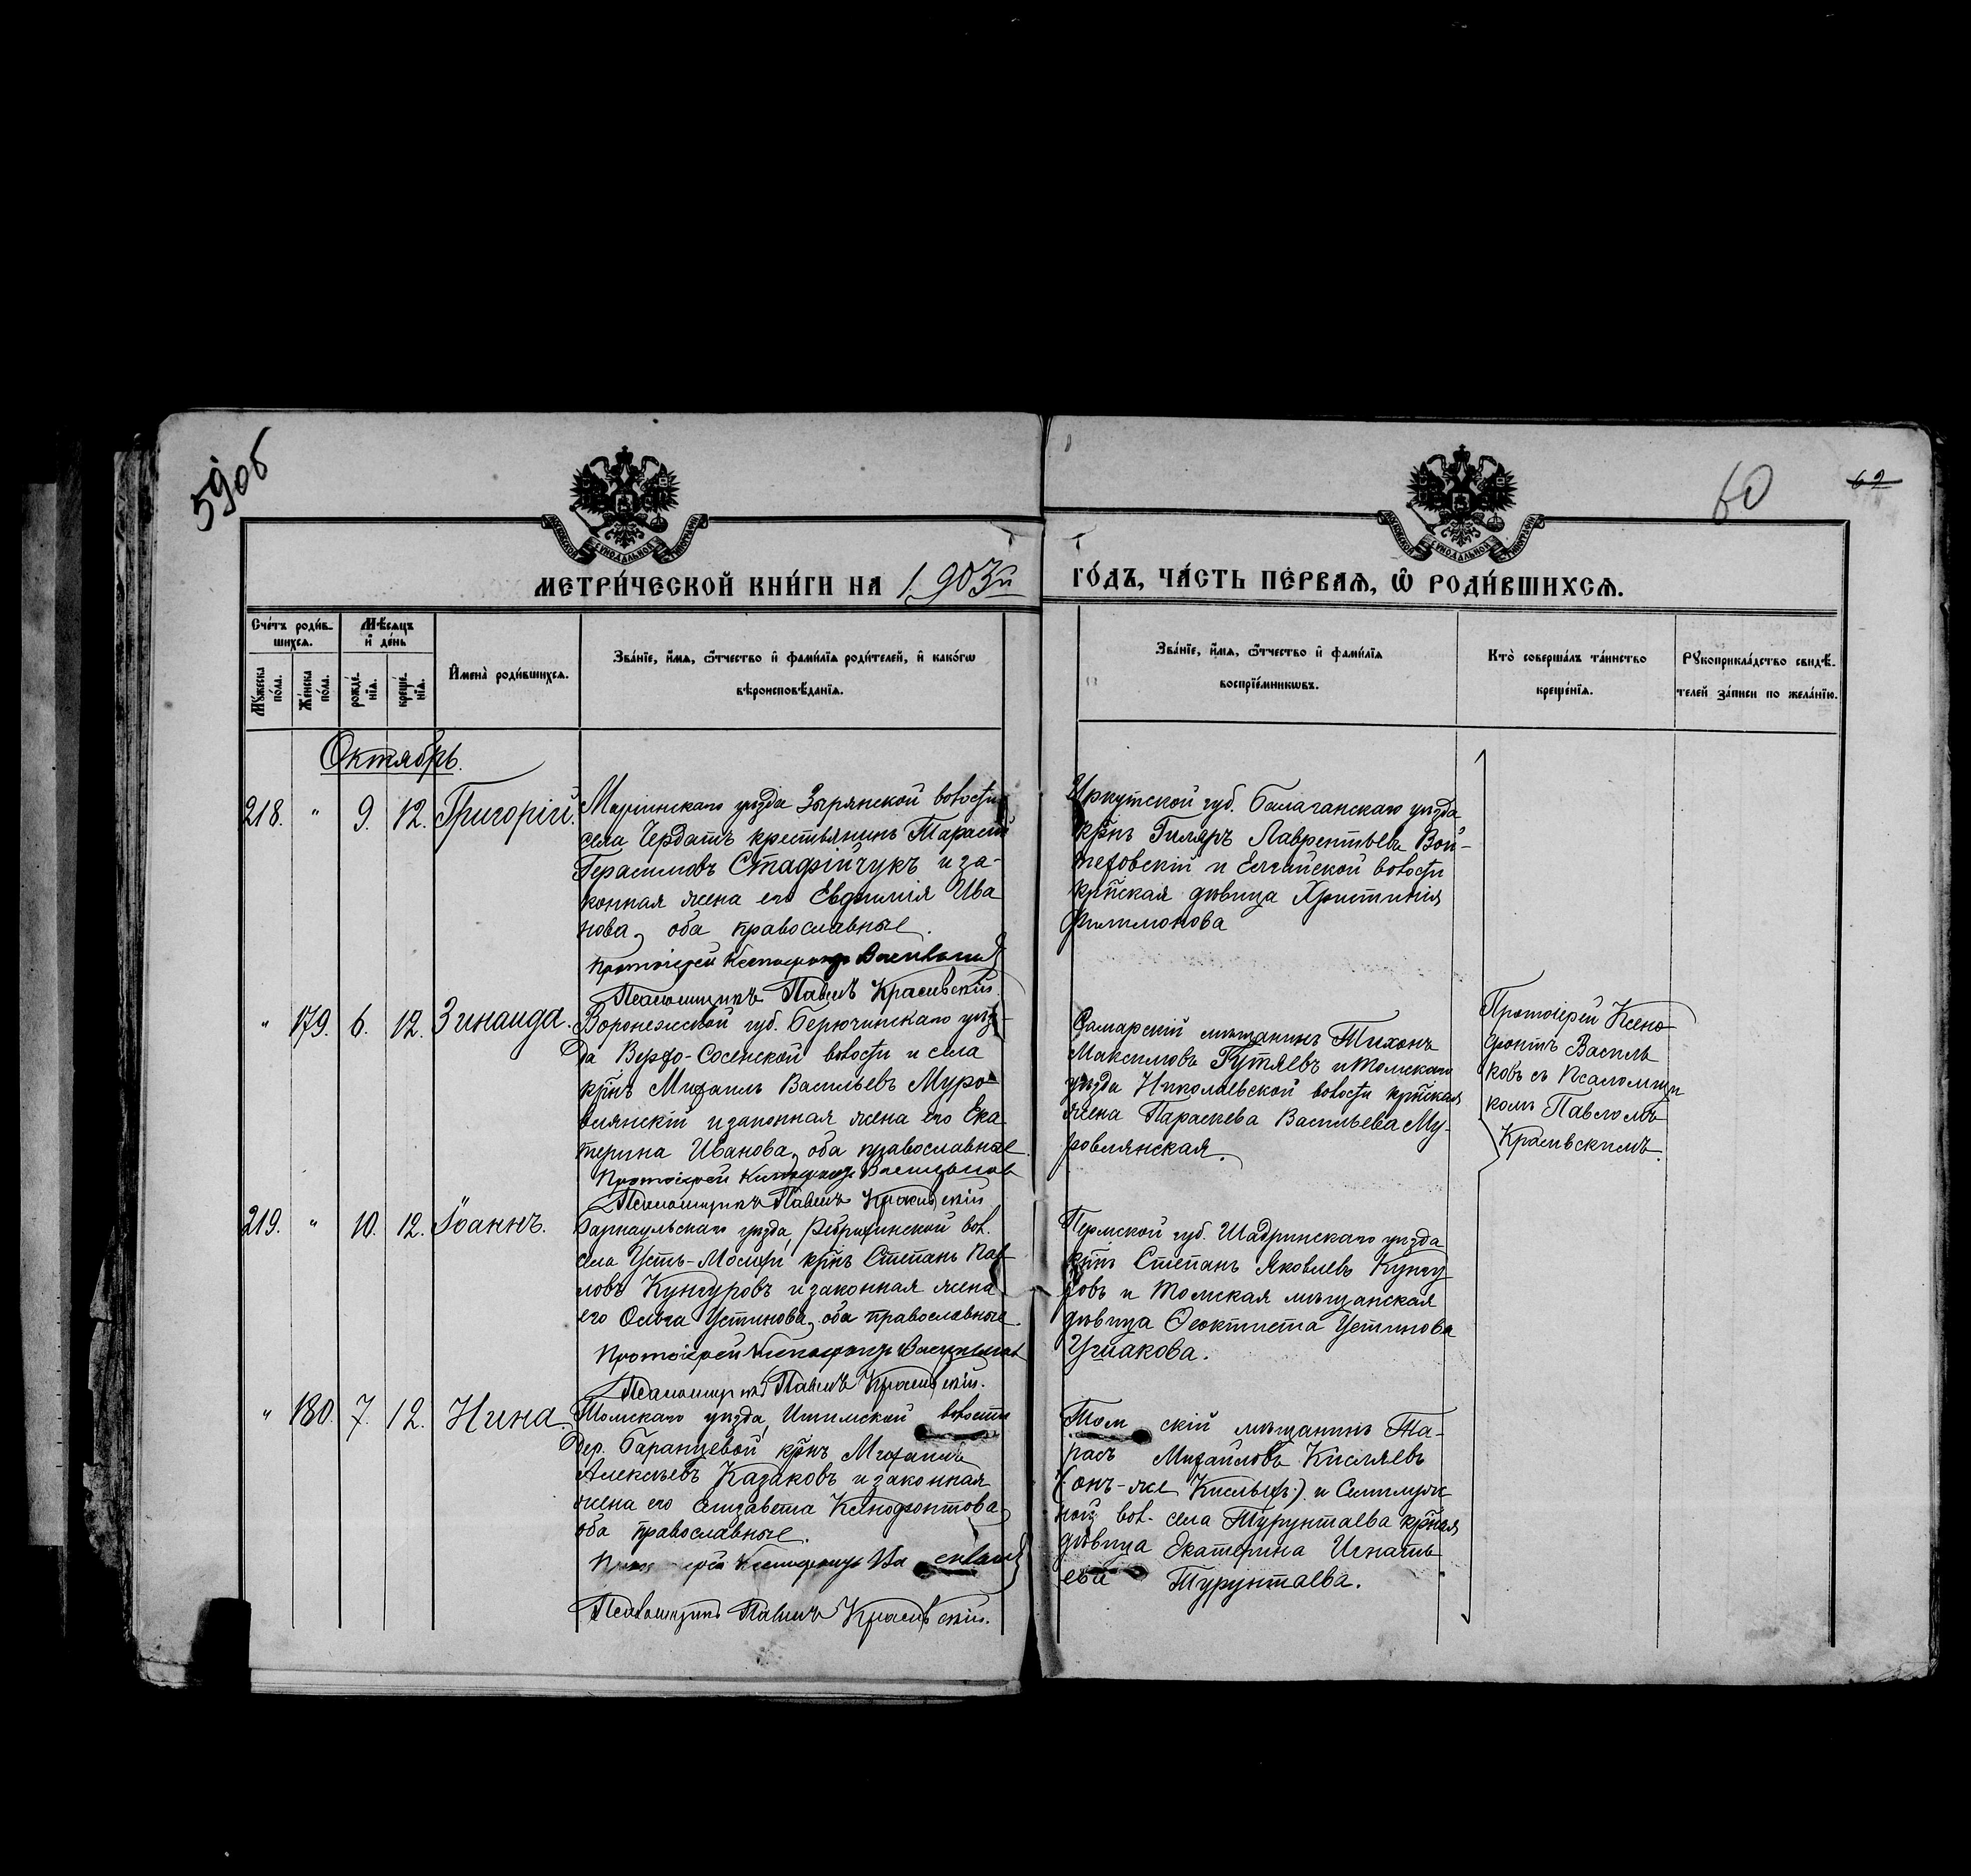 59об
60
62
МЕТРИ́ЧЕСКОЙ КНИ́ГИ НА 1903й
ГО́ДЪ, ЧА́СТЬ ПЕ́РВАѦ, Ѿ РОДИ́ВШИХСѦ.
Сче́тъ роди́в-
шихсѧ.
Мѣ́сѧцъ
и҆ де́нь
Мꙋ́жеска
по́ла.
Же́нска
по́ла.
рожде́-
нїѧ.
креще́-
нїѧ.
И҆мена̀ роди́вшихсѧ.
Зва́нїе, и҆́мѧ, ѻ҆́тчество и҆ фами́лїѧ роди́телей, и҆ како́гѡ
вѣроисповѣ́данїѧ.
Зва́нїе, и҆́мѧ, ѻ҆́тчество и҆ фами́лїѧ
воспрїе́мникѡвъ.
Кто̀ соверша́лъ та́инство
креще́нїѧ.
Рꙋкоприкла́дство свидѣ́-
телей за́писи по жела́нїю.
Октябрь.
218. " 9. 12. Григорій.
Маріинскаго уѣзда Зырянской волости
села Чердатъ крестьянинъ Тарасій
Герасимовъ Стафійчукъ и за-
конная жена его Евфимія Ива
нова, оба православные.
Протоіерей Ксенофонтъ Васильковъ
Псаломщикъ Павелъ Красивскій.
Иркутской губ. Балаганскаго уѣзда
кр̃нъ Гиляръ Лаврентьевъ Вой-
теховскій и Елгайской волости
кр̃нская дѣвица Христинія
Филимонова
" 179. 6. 12. Зинаида.
Воронежской губ. Берючинскаго уѣз-
да Верхо-Сосенской волости и села
кр̃нъ Михаилъ Васильевъ Муро-
влянскій и законная жена его Ека
терина Иванова, оба православные.
Протоіерей Ксенофонтъ Васильковъ
Псаломщикъ Павелъ Красивскій
Самарскій мѣщанинъ Тихонъ
Максимовъ Гутяевъ и Томскаго
уѣзда Николаевской волости кр̃нская
жена Параскева Васильева Му-
ровлянская.
Протоіерей Ксено
фонтъ Василь
ковъ съ Псаломщи
комъ Павломъ
Красивскимъ.
219. " 10. 12. Іоаннъ.
Барнаульскаго уѣзда, Ребрихинской вол.
села Усть-Мосихи кр̃нъ Степанъ Пав
ловъ Кунгуровъ и законная жена
его Ольга Устинова, оба православные.
Протоіерей Ксенофонтъ Васильковъ
Псаломщикъ Павелъ Красивскій.
Пермской губ. Шадринскаго уѣзда
кр̃нъ Степанъ Яковлевъ Кунгу
ровъ и Томская мѣщанская
дѣвица Ѳеоктиста Устинова
Ушакова.
" 180. 7. 12. Нина
Томскаго уѣзда, Ишимской волости
дер. Баранцевой, кр̃нъ Михаилъ
Алексѣевъ Казаковъ и законная
жена его Елизавета Ксенофонтова,
оба православные.
Протоіерей Ксенофонтъ Васильковъ
Псаломщикъ Павелъ Красивскій.
Томскій мѣщанинъ Та-
расъ Михайловъ Кисляевъ
(онъ-же Кислыхъ) и Семилуж
ной вол. села Турунтаева кр̃ная
дѣвица Екатерина Игнать
ева Турунтаева.